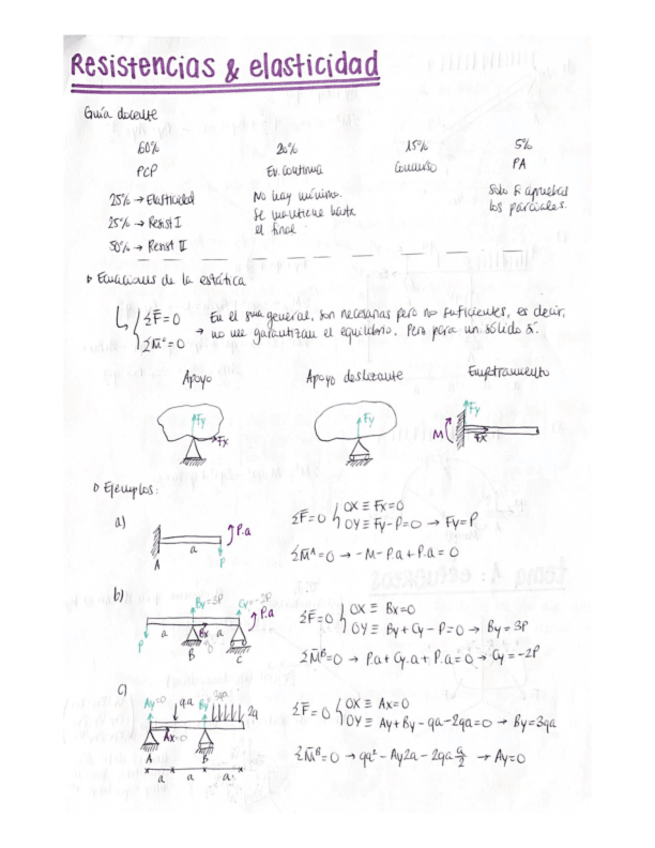 Resistencias & elasticidad
Guía docente
60% 20% 15% 5%
PCP Ev. Continua PA
25% → Elasticidad
25% → Resist I
50% → Resist II
No hay mínimo.
Se mantiene hasta
el final
Solo si apruebas
los parciales.
Ecuaciones de la estática
ΣF̄=0
ΣM̄=0
→ En el general, son necesarias pero no suficientes, es decir,
no me garantizan el equilibrio. Pero para un sólido sí.
Apoyo Apoyo deslizante Empotramiento
Fy
Fx
Fy
Fy
M
Fx
Ejemplos:
a)
P.a
a
P
A
ΣF̄=0
OX ≡ Fx=0
OY ≡ Fy-P=0 → Fy=P
ΣM̄ᴬ=0 → -M-P.a+P.a=0
b)
By=3P Cy=-2P
P.a
P a Bx a
B C
ΣF̄=0
OX ≡ Bx=0
OY ≡ By+Cy-P=0 → By=3P
ΣM̄ᴮ=0 → P.a+Cy.a+P.a=0 → Cy=-2P
c)
Ay=0 qa By 2qa
2q
Ax=0
A B
a a a
ΣF̄=0
OX ≡ Ax=0
OY ≡ Ay+By-qa-2qa=0 → By=3qa
ΣM̄ᴮ=0 → qa²-Ay2a-2qa a/2 → Ay=0